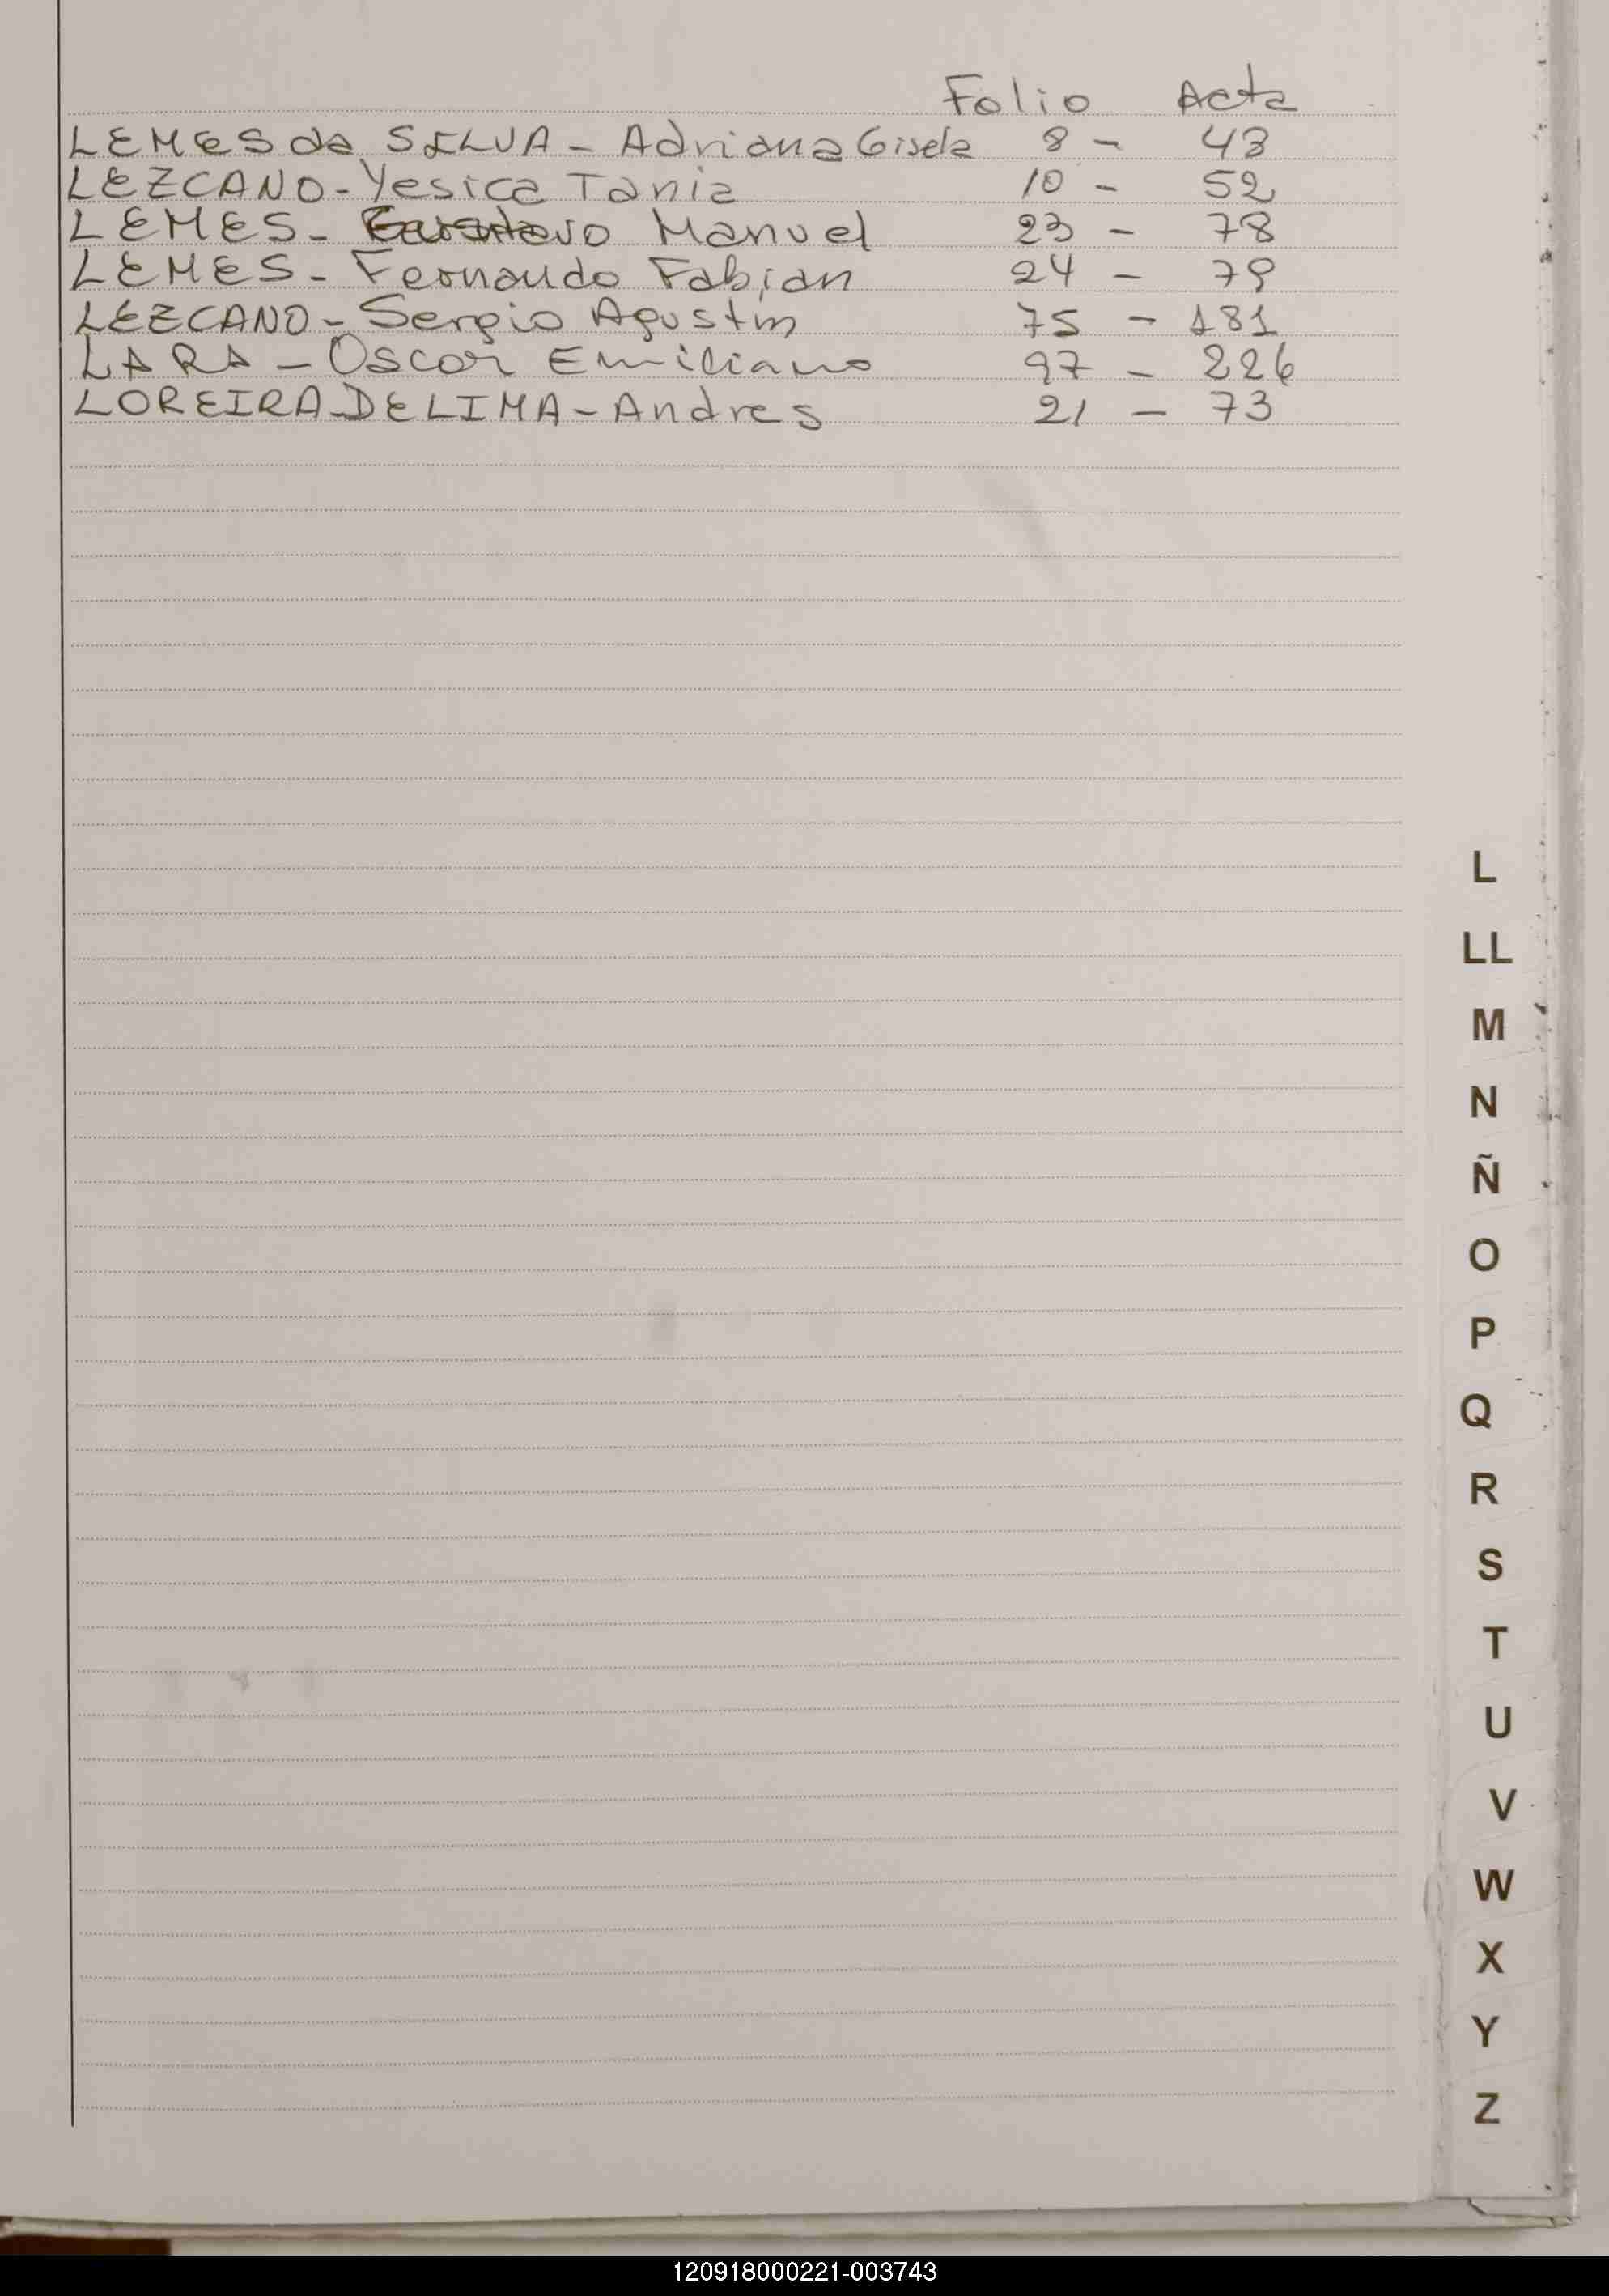 Folio Acta
LEMES da SILVA - Adriana Gisela 8 - 43
LEZCANO - Yesica Tania 10 - 52
LEMES - Gustavo Manuel 23 - 78
LEMES - Fernando Fabian 24 - 79
LEZCANO - Sergio Agustin 75 - 181
LARA - Oscar Emiliano 97 - 226
LOREIRA DE LIMA - Andres 21 - 73
L
LL
M
N
Ñ
O
P
Q
R
S
T
U
V
W
X
Y
Z
120918000221-003743